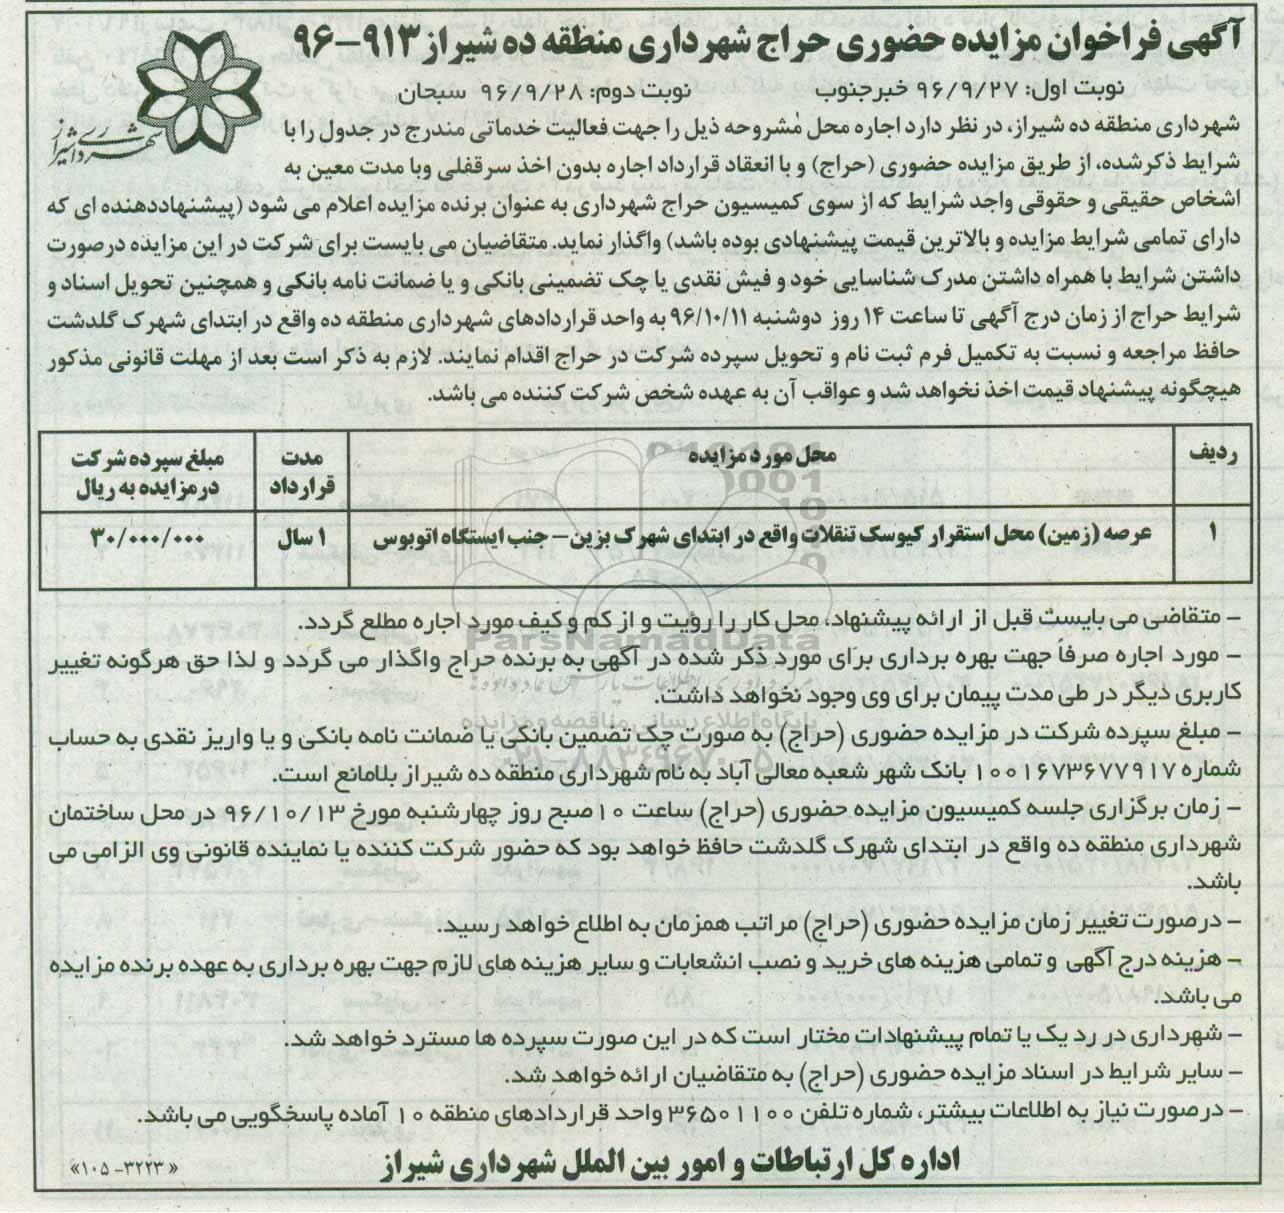 آگهی فراخوان مزایده حضوری حراج شهرداری منطقه ده شیراز ۹۱۳-۹۶
نوبت اول: ۹۶/۹/۲۷ خبرجنوب نوبت دوم: ۹۶/۹/۲۸ سبحان
شهرداری شیراز
شهرداری منطقه ده شیراز، در نظر دارد اجاره محل مشروحه ذیل را جهت فعالیت خدماتی مندرج در جدول را با
شرایط ذکرشده، از طریق مزایده حضوری (حراج) و با انعقاد قرارداد اجاره بدون اخذ سرقفلی وبا مدت معین به
اشخاص حقیقی و حقوقی واجد شرایط که از سوی کمیسیون حراج شهرداری به عنوان برنده مزایده اعلام می شود (پیشنهاددهنده ای که
دارای تمامی شرایط مزایده و بالاترین قیمت پیشنهادی بوده باشد) واگذار نماید. متقاضیان می بایست برای شرکت در این مزایده درصورت
داشتن شرایط با همراه داشتن مدرک شناسایی خود و فیش نقدی یا چک تضمینی بانکی و یا ضمانت نامه بانکی و همچنین تحویل اسناد و
شرایط حراج از زمان درج آگهی تا ساعت ۱۴ روز دوشنبه ۹۶/۱۰/۱۱ به واحد قراردادهای شهرداری منطقه ده واقع در ابتدای شهرک گلدشت
حافظ مراجعه و نسبت به تکمیل فرم ثبت نام و تحویل سپرده شرکت در حراج اقدام نمایند. لازم به ذکر است بعد از مهلت قانونی مذکور
هیچگونه پیشنهاد قیمت اخذ نخواهد شد و عواقب آن به عهده شخص شرکت کننده می باشد.
ردیف محل مورد مزایده مدت قرارداد مبلغ سپرده شرکت درمزایده به ریال
۱ عرصه (زمین) محل استقرار کیوسک تنقلات واقع در ابتدای شهرک بزین- جنب ایستگاه اتوبوس ۱ سال ۳۰/۰۰۰/۰۰۰
- متقاضی می بایست قبل از ارائه پیشنهاد، محل کار را رؤیت و از کم و کیف مورد اجاره مطلع گردد.
- مورد اجاره صرفاً جهت بهره برداری برای مورد ذکر شده در آگهی به برنده حراج واگذار می گردد و لذا حق هرگونه تغییر
کاربری دیگر در طی مدت پیمان برای وی وجود نخواهد داشت.
- مبلغ سپرده شرکت در مزایده حضوری (حراج) به صورت چک تضمین بانکی یا ضمانت نامه بانکی و یا واریز نقدی به حساب
شماره ۱۰۰۱۶۷۳۶۷۷۹۱۷ بانک شهر شعبه معالی آباد به نام شهرداری منطقه ده شیراز بلامانع است.
- زمان برگزاری جلسه کمیسیون مزایده حضوری (حراج) ساعت ۱۰ صبح روز چهارشنبه مورخ ۹۶/۱۰/۱۳ در محل ساختمان
شهرداری منطقه ده واقع در ابتدای شهرک گلدشت حافظ خواهد بود که حضور شرکت کننده یا نماینده قانونی وی الزامی می
باشد.
- درصورت تغییر زمان مزایده حضوری (حراج) مراتب همزمان به اطلاع خواهد رسید.
- هزینه درج آگهی و تمامی هزینه های خرید و نصب انشعابات و سایر هزینه های لازم جهت بهره برداری به عهده برنده مزایده
می باشد.
- شهرداری در رد یک یا تمام پیشنهادات مختار است که در این صورت سپرده ها مسترد خواهد شد.
- سایر شرایط در اسناد مزایده حضوری (حراج) به متقاضیان ارائه خواهد شد.
- درصورت نیاز به اطلاعات بیشتر، شماره تلفن ۳۶۵۰۱۱۰۰ واحد قراردادهای منطقه ۱۰ آماده پاسخگویی می باشد.
اداره کل ارتباطات و امور بین الملل شهرداری شیراز
« ۳۲۲۳- ۱۰۵»
ParsNamadData
پایگاه اطلاع رسانی مناقصه و مزایده
۰۲۱-۸۸۳۴۹۶۷۰-۵